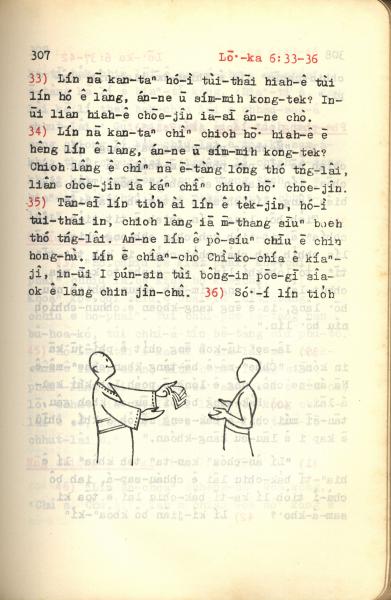 307 Lō͘-ka 6:33-36
33) Lín nā kan-taⁿ hó-ì tùi-thāi hiah-ê tùi
lín hó ê lâng, án-ne ū sím-mih kong-tek? In-
ūi liân hiah-ê chōe-jîn iā-sī án-ne chò.
34) Lín nā kan-taⁿ chîⁿ chioh hō͘ hiah-ê ē
hêng lín ê lâng, án-ne ū sím-mih kong-tek?
Chioh lâng ê chîⁿ nā ē-tàng lóng thó tńg-lâi,
liân chōe-jîn iā káⁿ chîⁿ chioh hō͘ chōe-jîn.
35) Tān-sī lín tio̍h ài lín ê te̍k-jîn, hó-ì
tùi-thāi in, chioh lâng iā m̄-thang siūⁿ boeh
thó tńg-lâi. Án-ne lín ê pò-siúⁿ chiū ē chin
hong-hù. Lín ē chiâⁿ-chò Chì-ko-chiá ê kiáⁿ-
jî, in-ūi I pún-sin tùi bông-in pōe-gī siâ-
ok ê lâng chin jîn-chû. 36) Só͘-í lín tio̍h